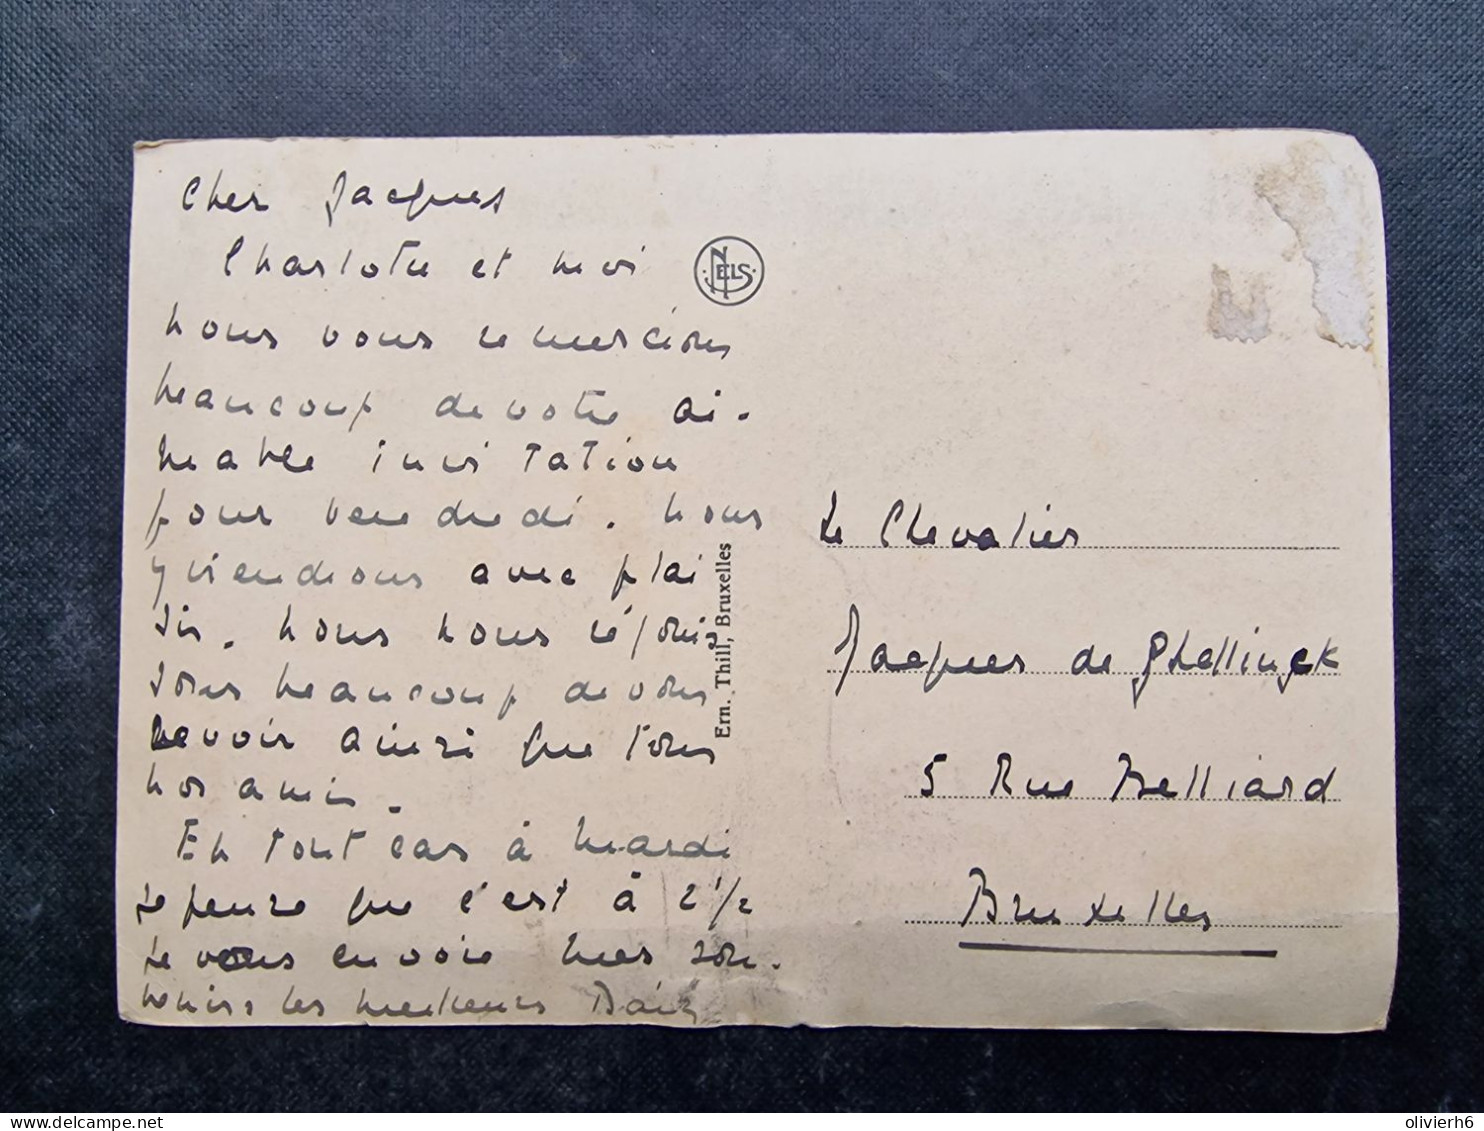 Cher Jacques
Charlotte et moi
nous vous remercions
beaucoup de votre ai-
mable invitation
pour vendredi. Nous
y viendrons avec plai
sir. Nous nous réjouis
sons beaucoup de vous
revoir ainsi que tous
nos amis.
En tout cas à mardi
je pense que c'est à 2 1/2
Je vous envoie mes sou-
venirs les meilleurs
NELS
Ern. Thill, Bruxelles
Le Chevalier
Jacques de Ghellinck
5 Rue Belliard
Bruxelles
olivierh6